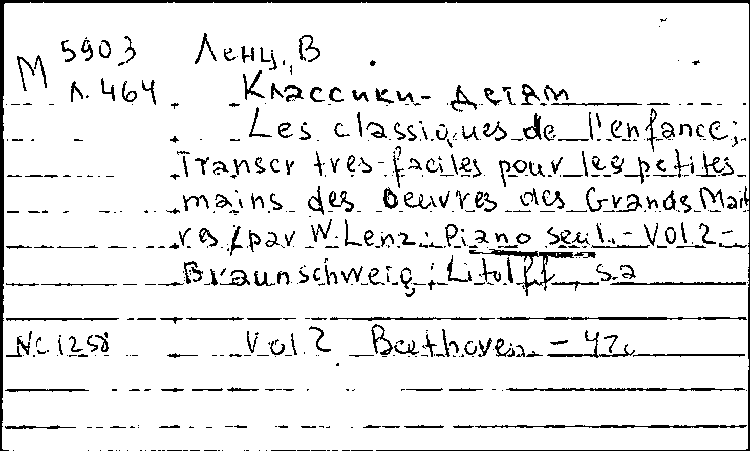 М 5903 Ленц, В
Л.464 Классики-детям
Les classiques de l'enfance;
Transcr tres-faciles pour les petites
mains des oeuvres des Grands Mait
res/par W.Lenz: Piano seul.-Vol 2-
Braunschweig: Litolff, s.a
NC1258 Vol 2 Beethoven. - 47c